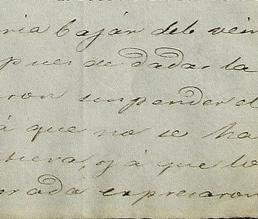 ria bajar del vein
pues de dadas la
ron suspender el
á que no se ha
siera, y á que lo
rada expresaron